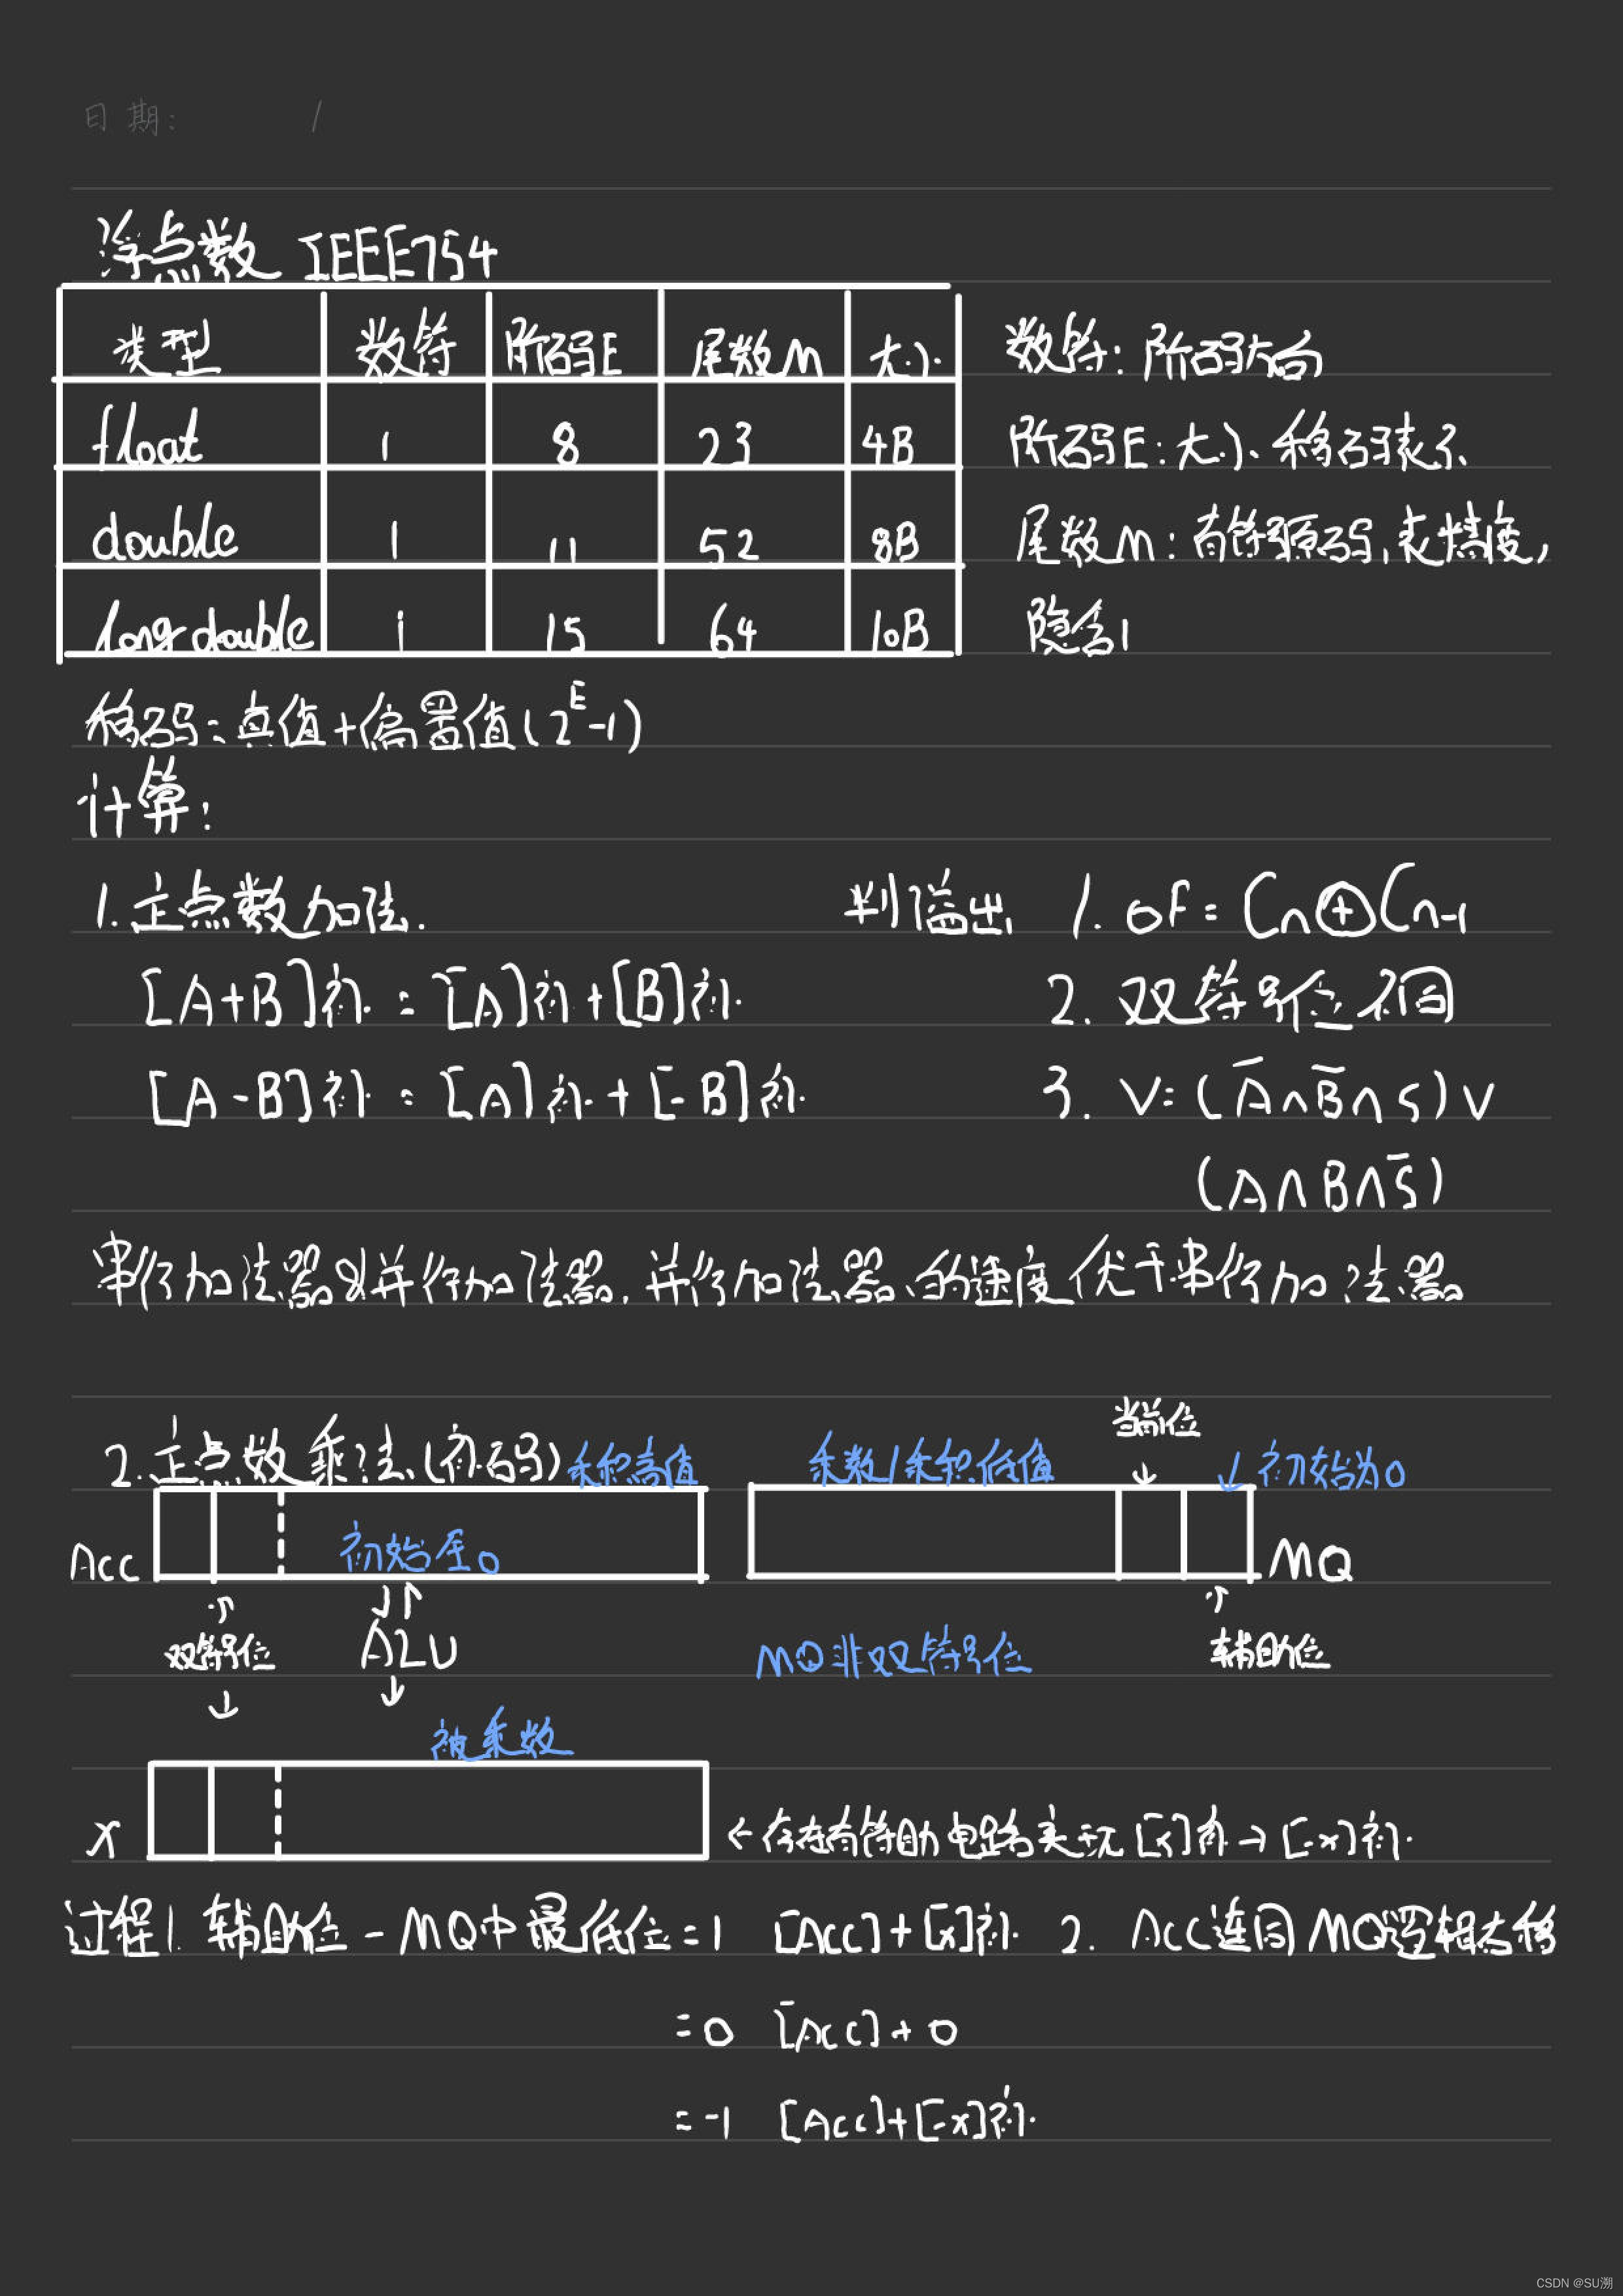 日期: /
浮点数 IEEE754
类型 数符 阶码E 尾数M 大小
float 1 8 23 4B
double 1 11 52 8B
long double 1 15 64 10B
数符: 阶码方向
阶码E: 大小、移码表示
尾数M: 有符号原码,表精度,
隐含1
移码: 真值+偏置值(2^E-1)
计算:
1. 定点数加法.
[A+B]补 = [A]补+[B]补
[A-B]补 = [A]补+[-B]补
判溢出 1. OF= Cn⊕Cn-1
2. 双符号位不同
3. V= (A̅∧B̅∧S)∨
(A∧B∧S̅)
串行加法器&并行加法器. 并行加法器的速度优于串行加法器
2. 定点数乘法(补码) 乘积高值
乘数/乘积低值
当前位
↓ 初始为0
ACC 初始全0
MQ
双符号位
ALU
MQ非双符号位
辅助位
被乘数
X
←存在有符助电路实现[x]补→[-x]补
过程1. 辅助位-MQ中最低位=1 [ACC]+[x]补 2. ACC连同MQ逻辑右移
=0 [ACC]+0
=-1 [ACC]+[-x]补
CSDN @SU溯